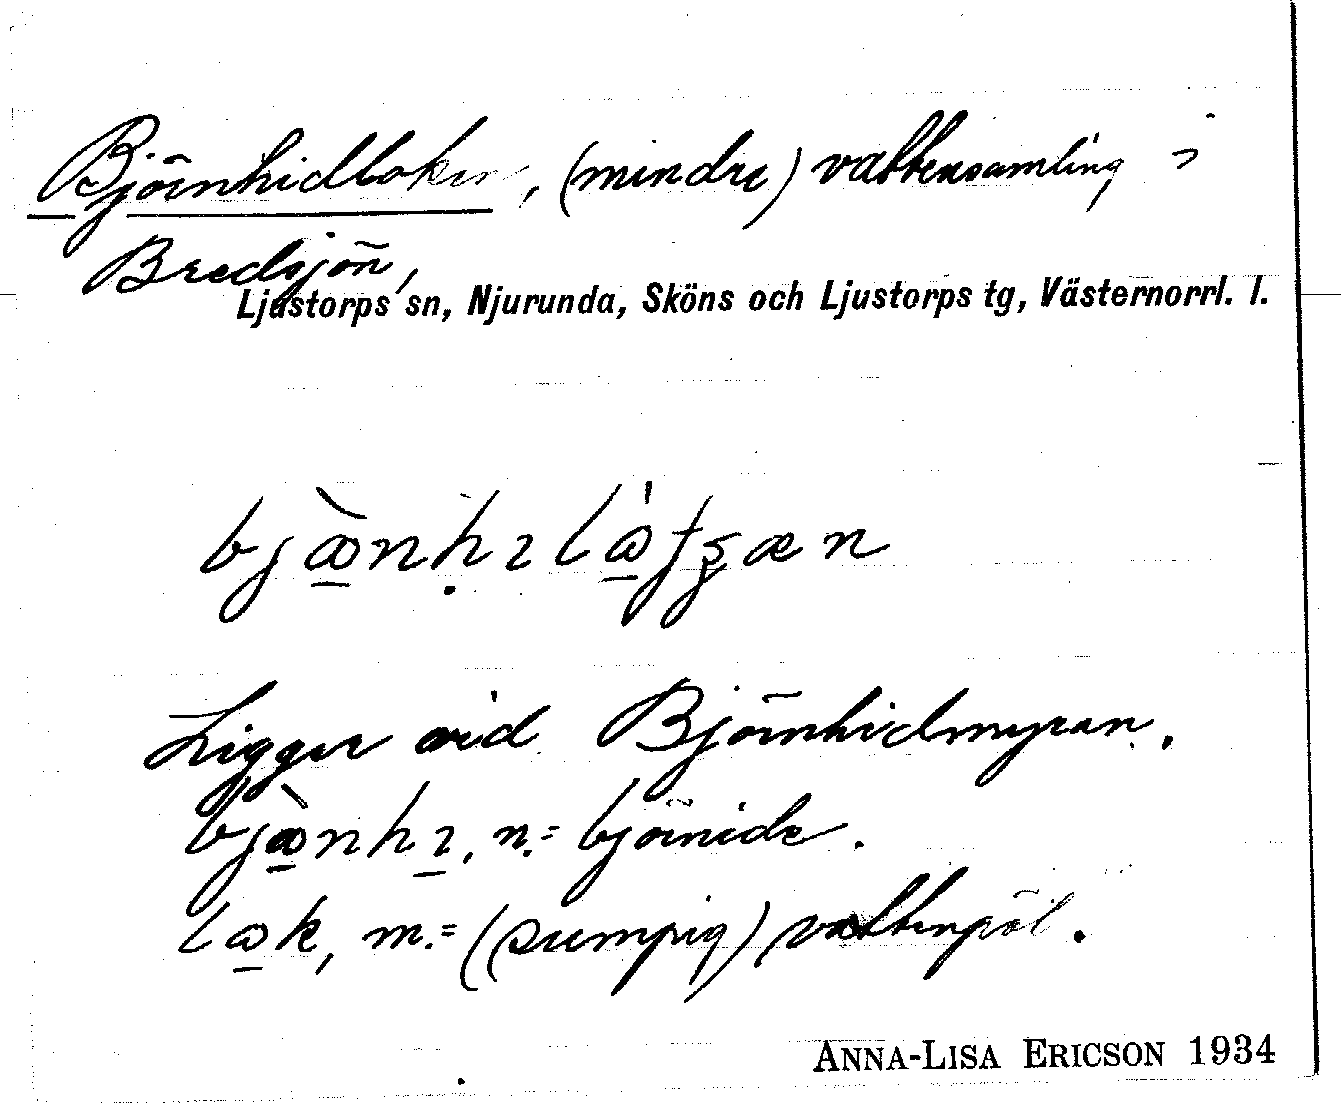 Björnhidloken, (mindre) vattensamling i
Bredsjön,
Ljustorps sn, Njurunda, Sköns och Ljustorps tg, Västernorrl. l.
Ligger vid Björnhidmyran.
n.= björnide.
m.= (sumpig) vattenpöl.
ANNA-LISA ERICSON 1934